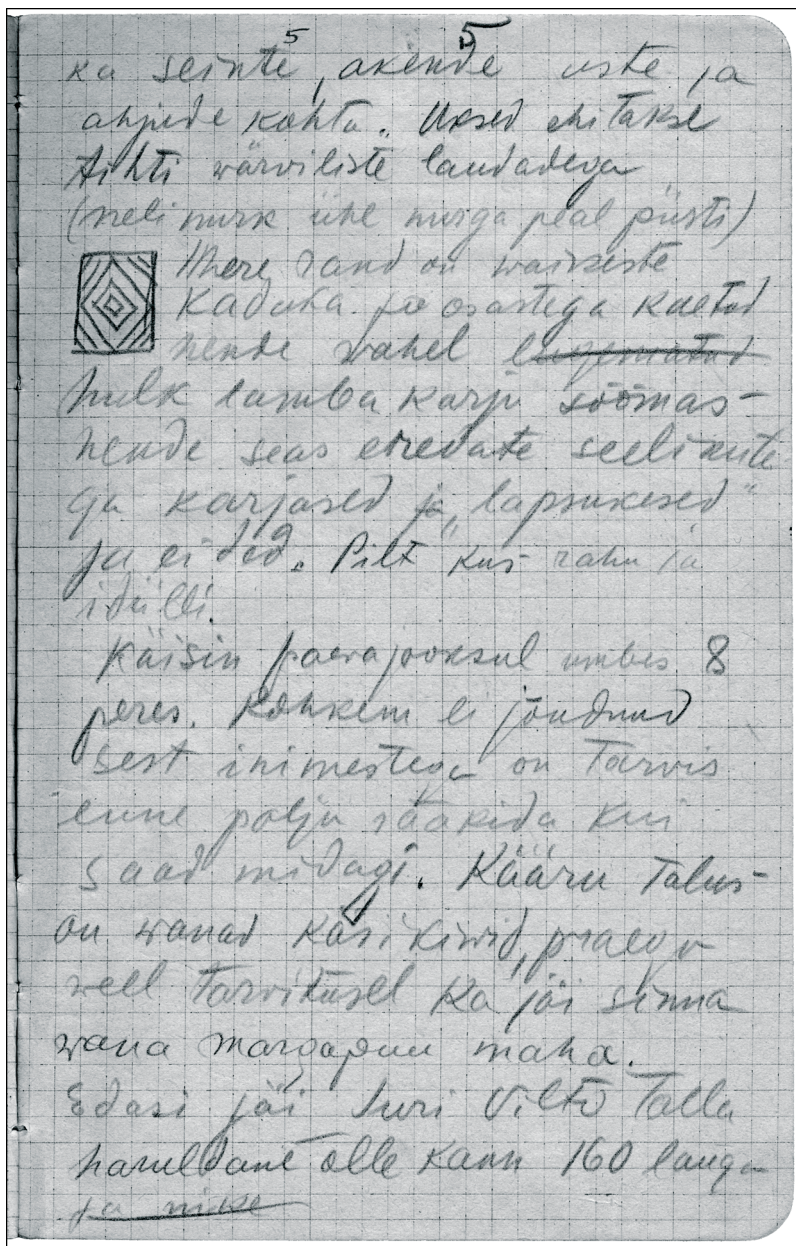 5 5
ka seinte, akende uste ja
ahjude kohta. Uksed ehitakse
tihti wärwiliste laudadega
(nelinurk ühe nurga peal püsti)
Mere rand on waikeste
Kadaka po osastega kaetud
nende wahel lugematud
hulk lamba karju söömas-
nende seas eredate seelikute
ga karjased ja „lapsukesed”
ja eided. Pilt kus rahu ja
idülli.
Käisin päevajooksul umbes 8
peres. Rohkem ei jõudnud
sest inimestega on tarvis
enne palju rääkida kui
saad midagi. Kääru talus-
on wanad käsikiwid, praegu
weel tarvitusel ka jäi sinna
wana margapuu maha.
Edasi jäi Juri Viltö talla
haruldane õlle kann 160 langa
ja nike